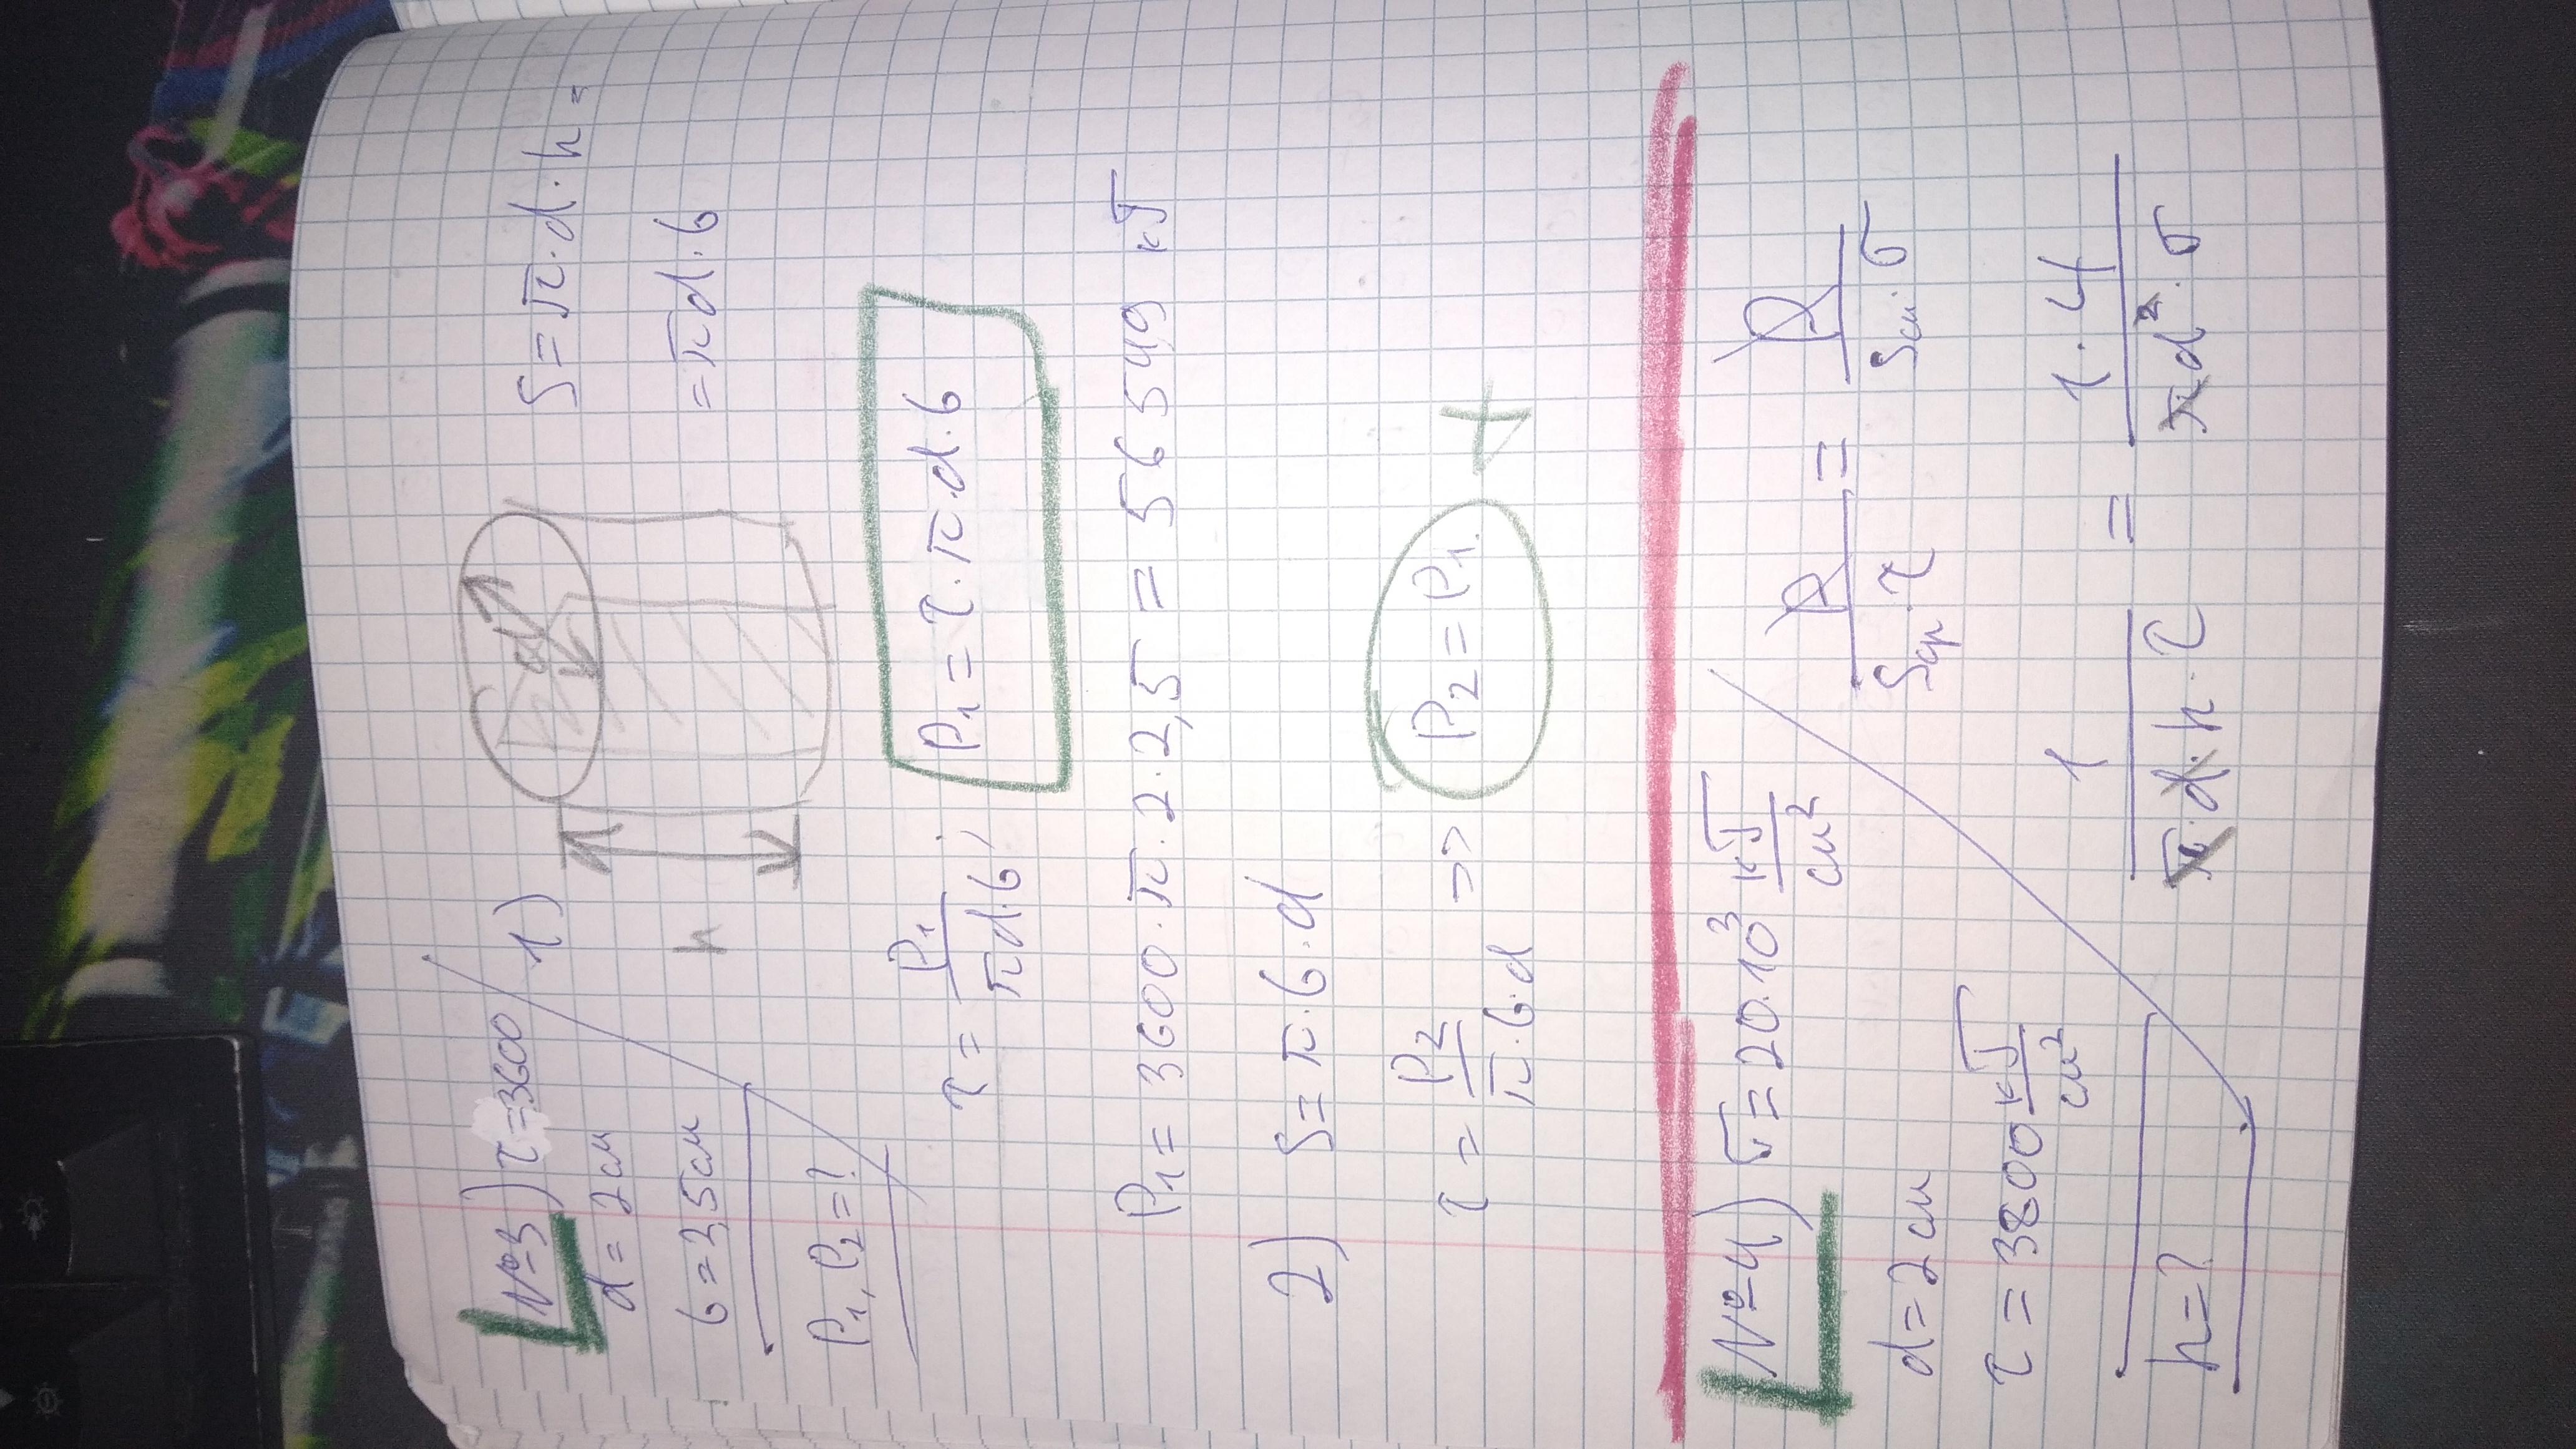 №3) τ=3600
d = 2 см
б = 2,5 см
P₁, P₂ = ?
1)
d
h
S = π·d·h =
= πd·б
τ = P₁/(πd·б); P₁ = τ·π·d·б
P₁ = 3600·π·2·2,5 = 56549 кГ
2) S = π·б·d
τ = P₂/(π·б·d) => P₂ = P₁. +
№4) σ = 20·10³ кГ/см²
d = 2 см
τ = 3800 кГ/см²
h = ?
P/(Sср·τ) = P/(Sсм·σ)
1/(π·d·h·τ) = 1·4/(πd²·σ)